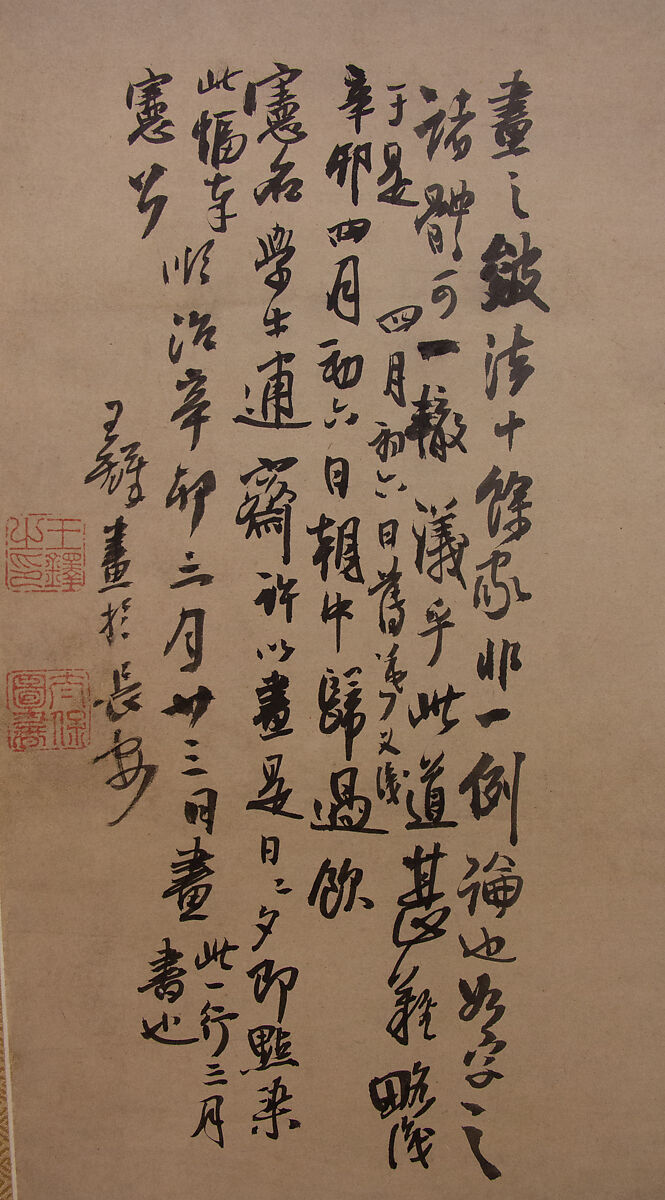 畫之皴法十餘家非一例論也如字之
諸體可一轍議乎此道甚難略識
于是 四月初六日舊又識
辛卯四月初六日朝中歸過飲
憲石學士逋齋許以畫是日之夕即點染
此幅奉
憲公
順治辛卯三月廿三日畫
此一行三月
書也
王鐸畫於長安
王鐸之印
太保圖書